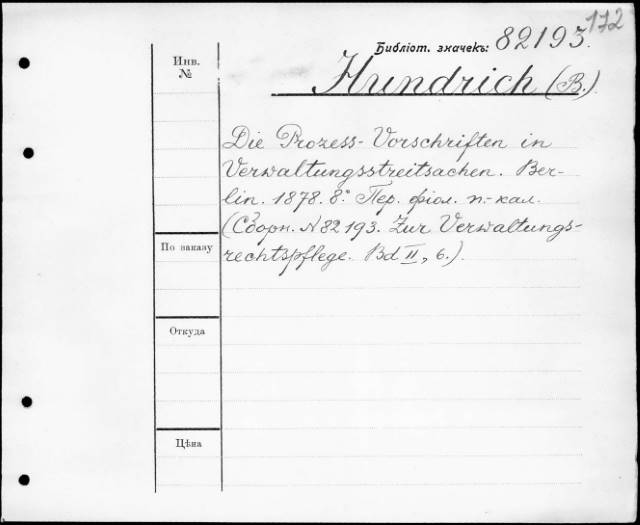 172
Библіот. значекъ: 82193.
Инв.
№
Hundrich (B.)
Die Prozess-Vorschriften in
Verwaltungsstreitsachen. Ber-
lin. 1878. 8.° Пер. фіол. п.-кал.
(Сборн. № 82193. Zur Verwaltungs-
По заказу
rechtspflege. Bd II, 6.).
Откуда
Цѣна